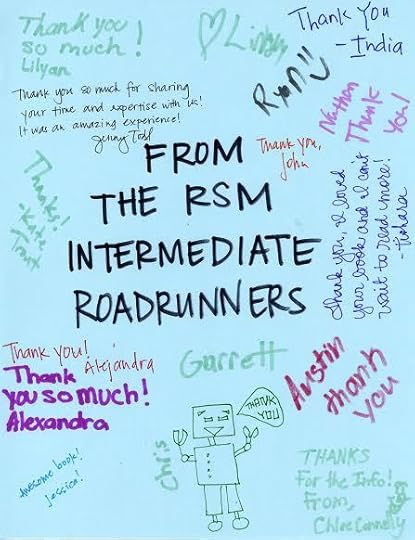 Thank you
so much!
Lilyan
♡ Libby
Thank You
- India
Ryan
Nathan
Thank
You!
Thank you so much for sharing
your time and expertise with us!
It was an amazing experience!
Jenny Todd
Thank you,
John
Thanks!
FROM
THE RSM
INTERMEDIATE
ROADRUNNERS
Thank you, I loved
your book and I can't
wait to read more!
Thank you!
Alejandra
Thank
you so much!
Alexandra
Garrett
Austin
thank
you
THANK
YOU
Chris
Awesome book!
Jessica!
THANKS
For the Info!
From,
Chloe Connelly